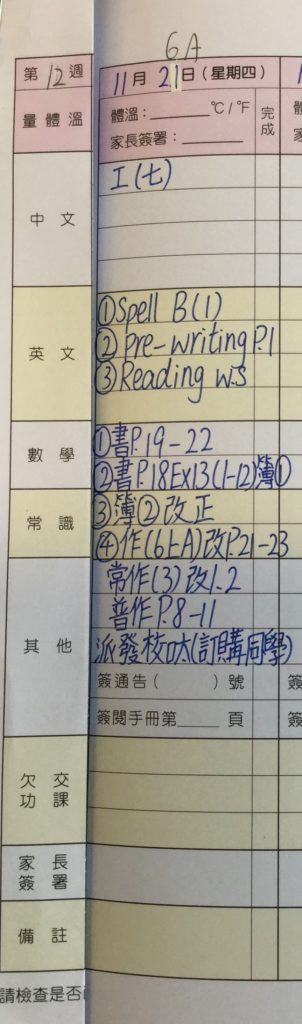 6A
第12週 11月21日(星期四)
量體溫 體溫：______℃/℉ 完成
家長簽署：______
中文 工(七)
英文 ①Spell B(1)
②pre-writing P.1
③Reading w.s
數學 ①書P.19-22
②書P.18Ex13(1-12)簿①
常識 ③簿②改正
④作(6上A)改P.21-23
其他 常作(3)改1.2
普作P.8-11
派發校(訂購同學)
簽通告( )號 簽
簽閱手冊第______頁 簽
欠交功課
家長簽署
備註
請檢查是否